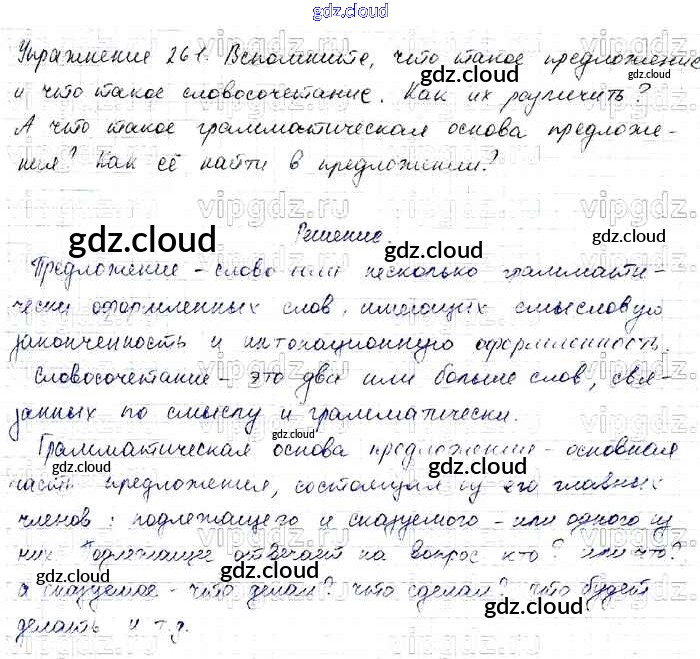 gdz.cloud
Упражнение 261. Вспомните, что такое предложение
и что такое словосочетание. Как их различить?
А что такое грамматическая основа предложе-
ния? Как её найти в предложении?
Решение.
Предложение - слово или несколько граммати-
чески оформленных слов, имеющих смысловую
законченность и интонационную оформленность.
Словосочетание - это два или больше слов, свя-
занных по смыслу и грамматически.
Грамматическая основа предложения - основная
часть предложения, состоящая из его главных
членов: подлежащего и сказуемого - или одного из
них. Подлежащее отвечает на вопрос кто? или что?
а сказуемое - что делал? что сделал? что будет
делать и т.д.